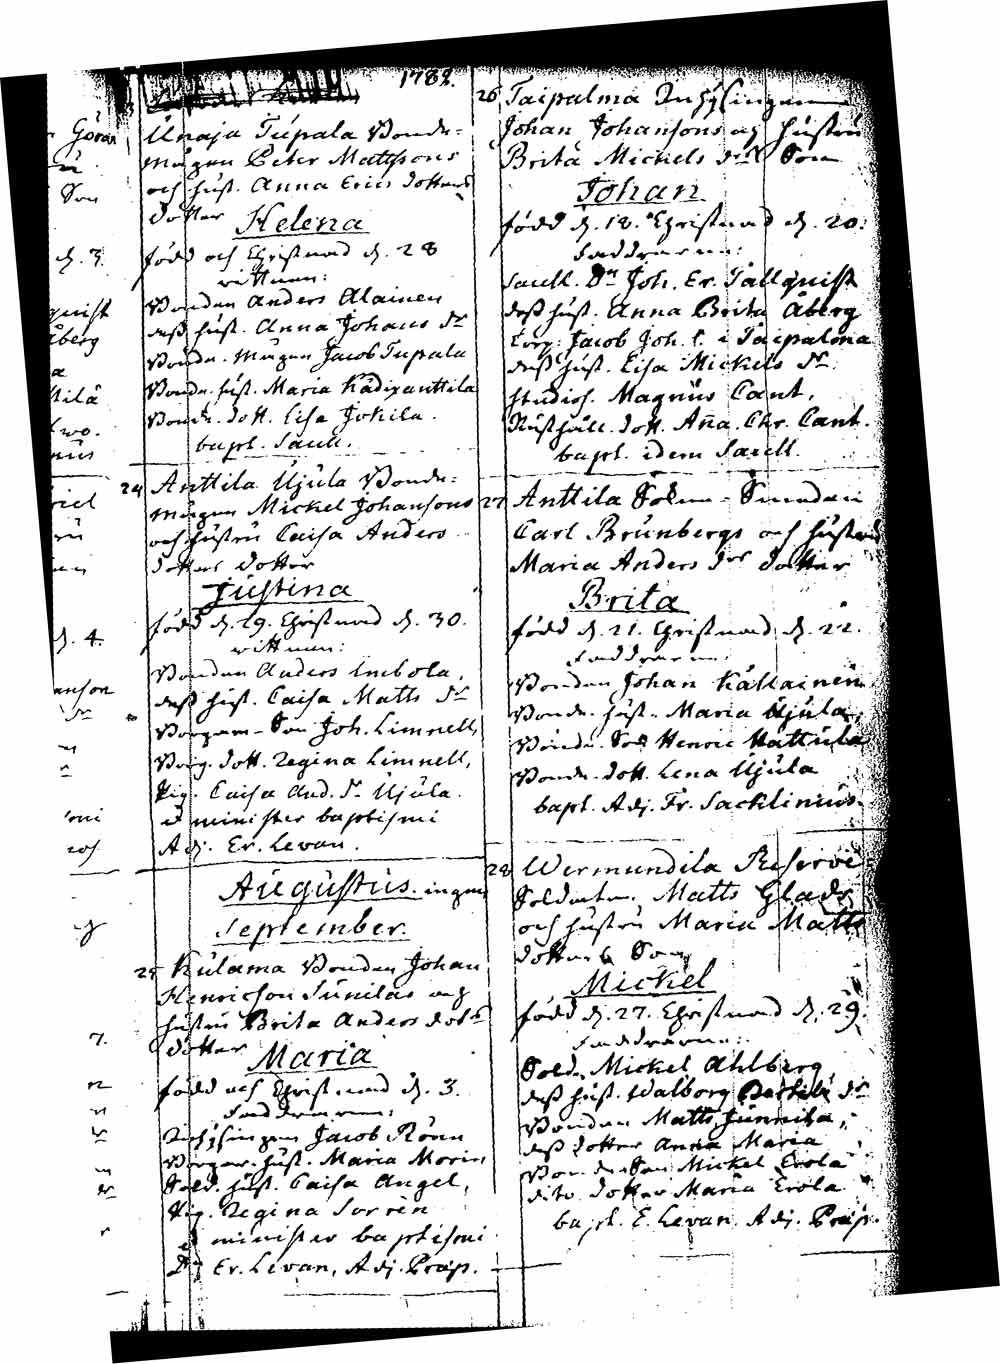 1782.
Unaja Tupala Bonde-
mågen Peter Mattssons
och hust. Anna Erics dotters
dotter Helena
född och Christnad d. 28
vittnen:
Bonden Anders Alainen
dess hust. Anna Johans dr
Bonde-mågen Jacob Tupala
Bonde. hust. Maria Kädixanttila
Bonde. dott. Lisa Johila.
bapt. Sacell.
24 Anttila Ujula Bonde-
mågen Mickel Johansons
och hustru Caisa Anders
dotters dotter
Justina
född d. 29. Christnad d. 30.
vittnen:
Bonden Anders Imbola,
dess hust. Caisa Matts dr
Borgare-Son Joh. Limnell,
Borg. dott. Regina Limnell,
Pig. Caisa And. dr Ujula.
minister baptismi
Adj. Er. Levan.
Augustus ingen
September.
25 Kulama Bonden Johan
Henricson Sunilas och
hustru Brita Anders dotts
dotter Maria
född och Christnad d. 3.
Faddrarne:
Inhysingen Jacob Rönn
Borgar. hust. Maria Morin
Sold. hust. Caisa Angel,
Pig. Regina Sorrèn
minister baptismi
Dn Er. Levan, Adj. Præp.
26 Taipalma Inhysingen
Johan Johansons och hustru
Brita Mickels drs Son
Johan
född d. 18. Christnad d. 20.
Faddrarne:
Sacell. Dn Joh. Er. Tallquist
dess hust. Anna Brita Åberg
Torp. Jacob Joh. S. i Taipalma
dess hust. Lisa Mickels dr
studios. Magnus Cant,
Rusthåll. dott. Aña. Chr. Cant.
bapt. idem Sacell.
27 Anttila Sokne-Smeden
Carl Brunbergs och hustru
Maria Anders drs dotter
Brita
född d. 21. Christnad d. 22.
Faddrarne:
Bonden Johan Källainen
Bonde. hust. Maria Ujula,
Bonde. Son Henric Mattula
Bonde. dott. Lena Ujula
bapt. Adj. Fr. Sacklinius.
28 Wermundila Reserve
Soldaten Matts Glads
och hustru Maria Matts
dotters Son
Mickel
född d. 27. Christnad d. 29.
Faddrarne:
Sold. Mickel Ahlberg,
dess hust. Walborg dr
Bonden Matts Junnila,
dess dotter Anna Maria
Bonde Son Mickel Erola
dito dotter Maria Erola
bapt. E. Levan. Adj. Præp.